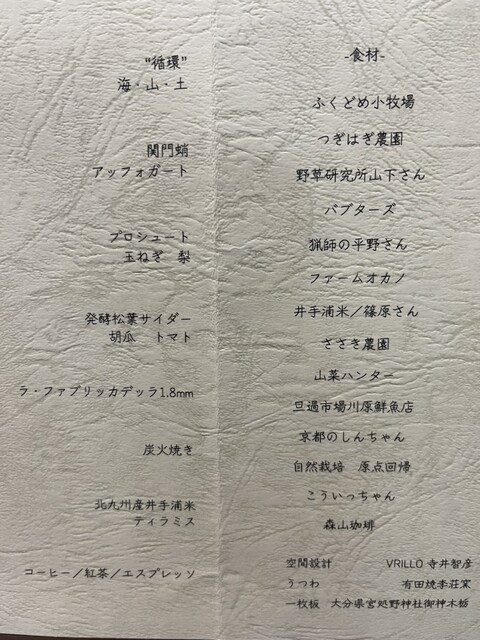 "循環"
海・山・土
関門蛸
アッフォガート
プロシュート
玉ねぎ　梨
発酵松葉サイダー
胡瓜　トマト
ラ・ファブリッカデッラ1.8mm
炭火焼き
北九州産井手浦米
ティラミス
コーヒー／紅茶／エスプレッソ
-食材-
ふくどめ小牧場
つぎはぎ農園
野草研究所山下さん
バブターズ
猟師の平野さん
ファームオカノ
井手浦米／篠原さん
ささき農園
山菜ハンター
旦過市場川原鮮魚店
京都のしんちゃん
自然栽培　原点回帰
こういっちゃん
森山珈琲
空間設計　VRILLO 寺井智彦
うつわ　有田焼李荘窯
一枚板　大分県宮処野神社御神木栃